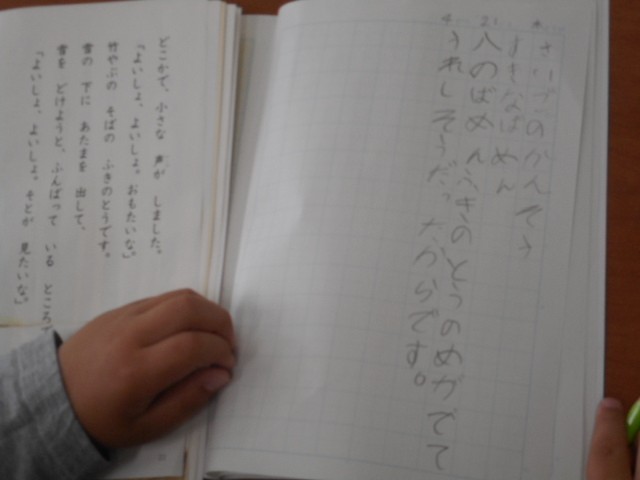 さいごのかんそう
すきなばめん
八のばめんふきのとうのめがでて
うれしそうだったからです。
どこかで、小さな 声が しました。
「よいしょ、よいしょ。おもたいな。」
竹やぶの そばの ふきのとうです。
雪の 下に あたまを 出して、
雪を どけようと、ふんばって いる ところで
「よいしょ、よいしょ。そとが 見たいな。」